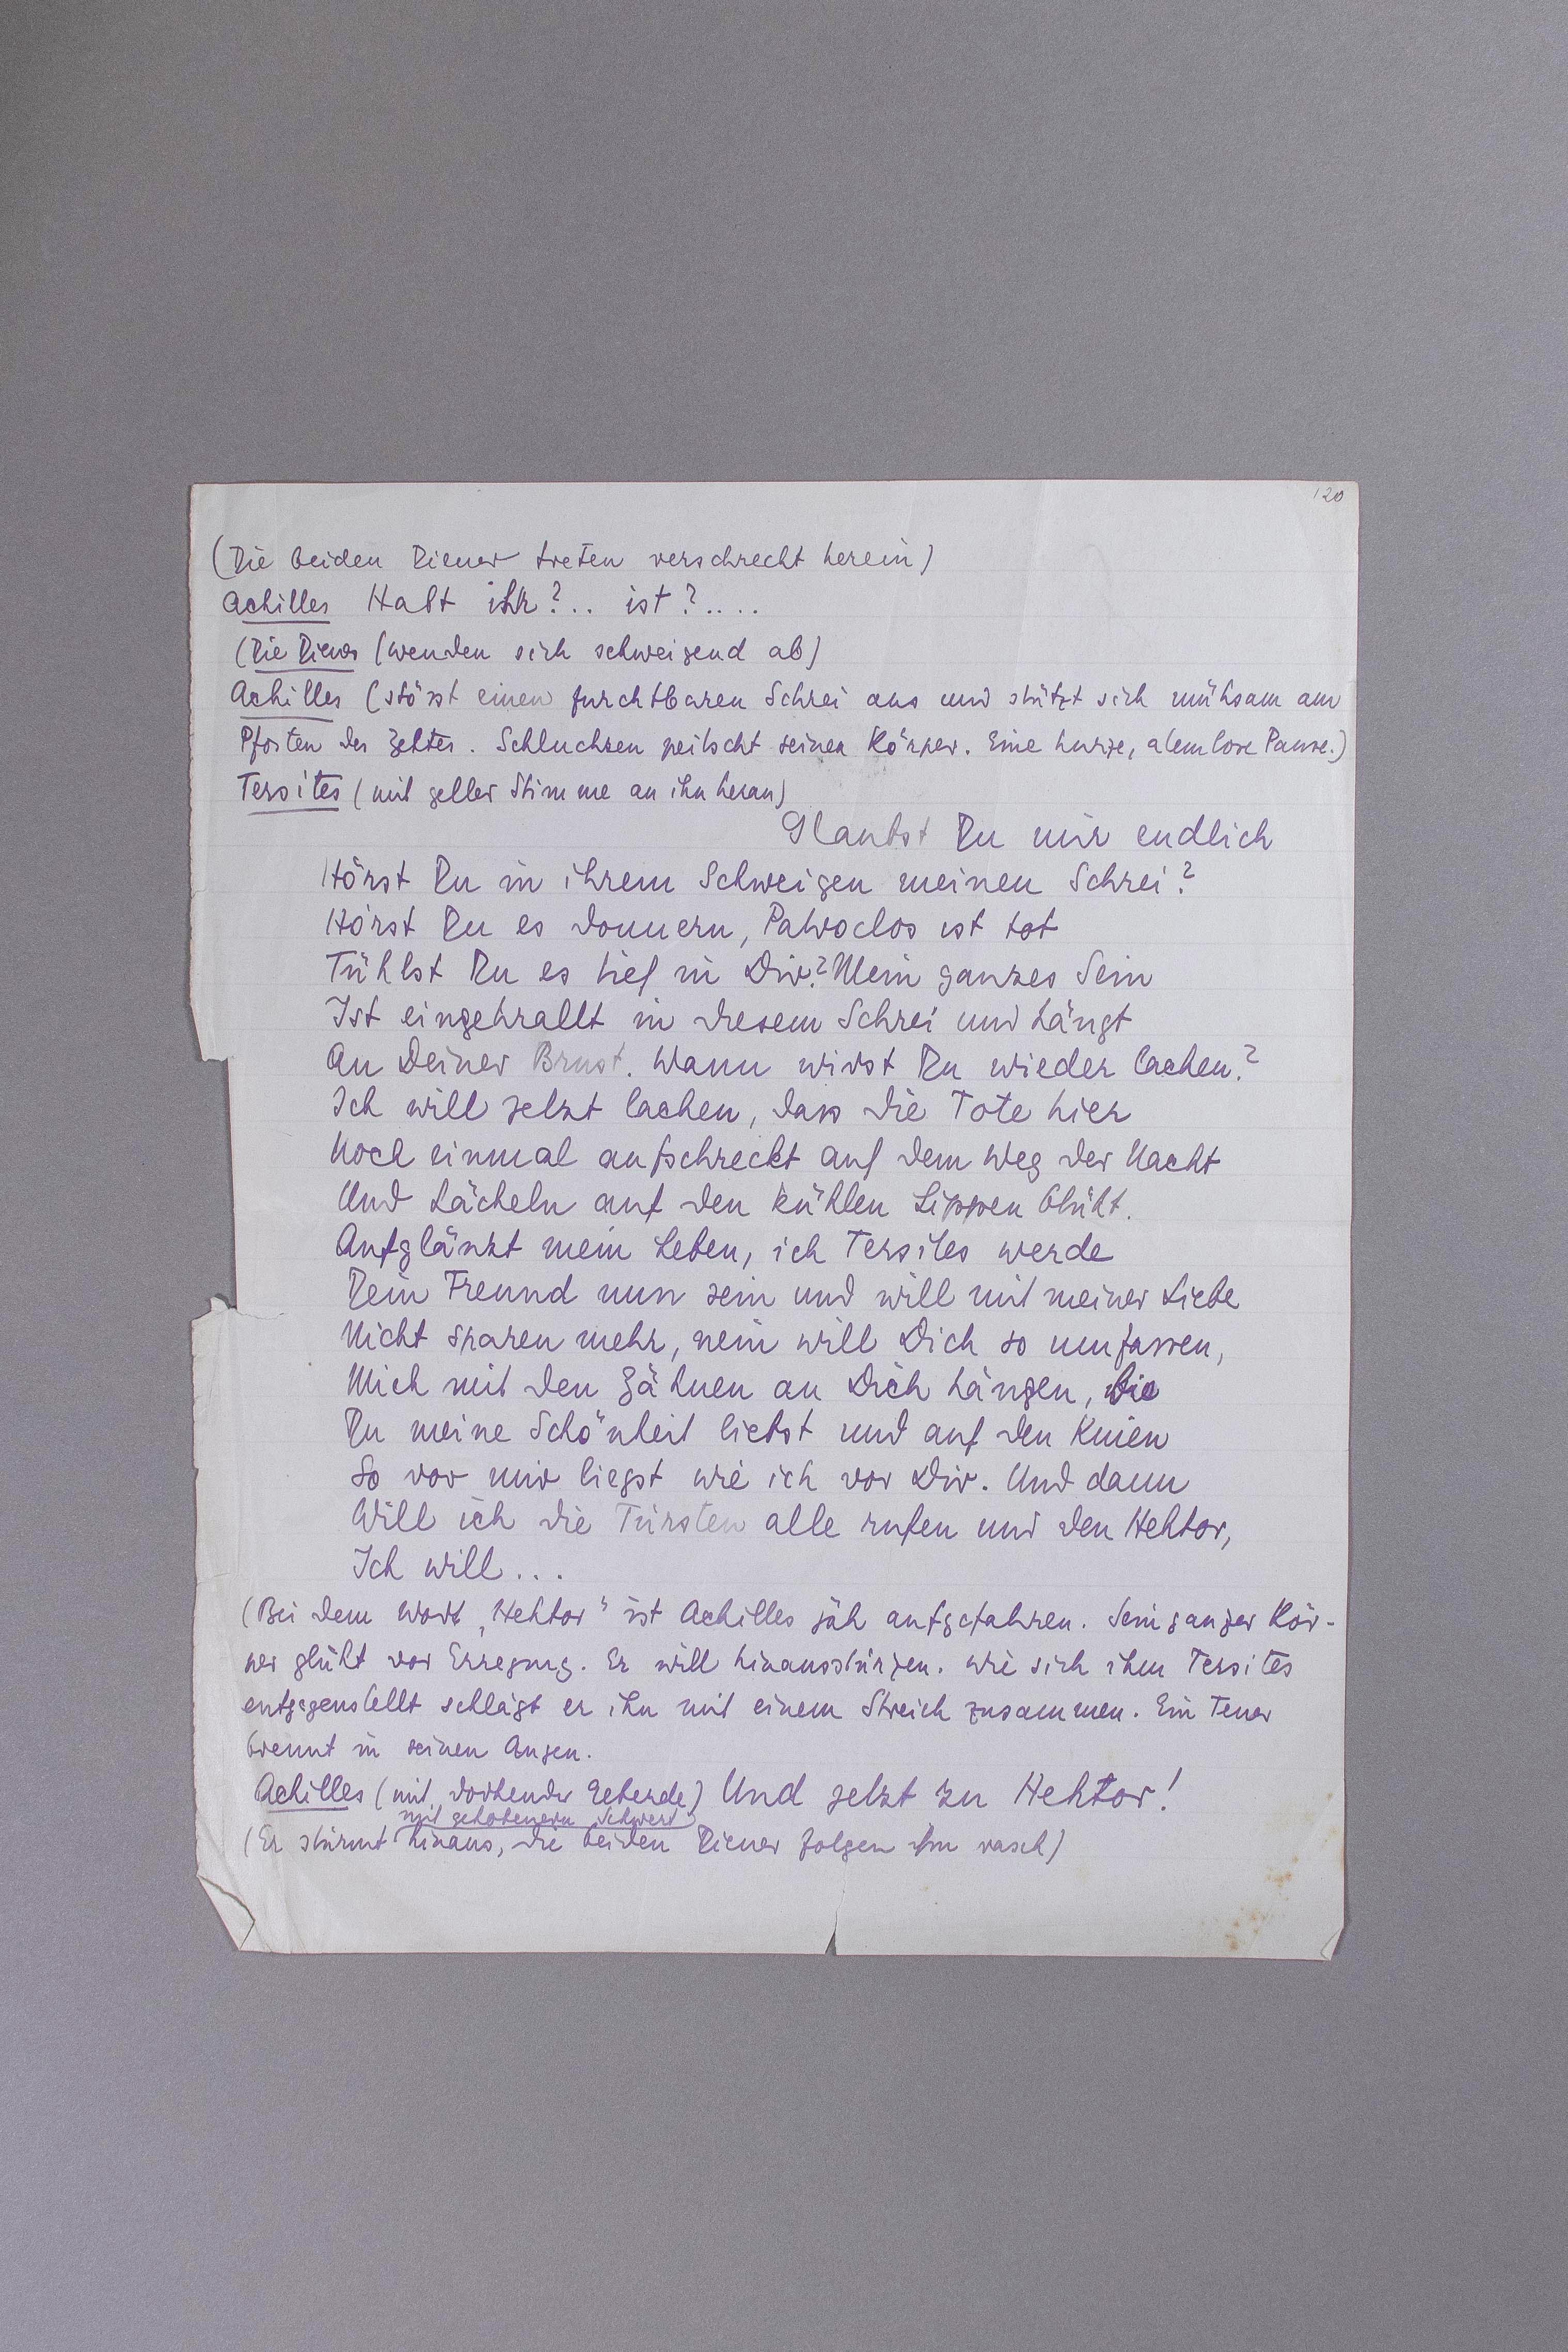 120
(Die beiden Diener treten verschreckt herein)
Achilles Habt ihr?.. ist?....
(Die Diener (wenden sich schweigend ab)
Achilles (stösst einen furchtbaren Schrei aus und stützt sich mühsam am
Pfosten des Zeltes. Schluchzen peitscht seinen Körper. Eine kurze, atemlose Pause.)
Tersites (mit geller Stimme an ihn heran)
Glaubst Du mir endlich
Hörst Du in ihrem Schweigen meinen Schrei?
Hörst Du es donnern, Patroclos ist tot
Fühlst Du es tief in Dir? Mein ganzes Sein
Ist eingekrallt in diesem Schrei und hängt
An Deiner Brust. Wann wirst Du wieder lachen?
Ich will jetzt lachen, dass die Tote hier
Noch einmal aufschreckt auf dem Weg der Nacht
Und Lächeln auf den kühlen Lippen blüht.
Aufglänzt mein Leben, ich Tersites werde
Dein Freund nun sein und will mit meiner Liebe
Nicht sparen mehr, nein will Dich so umfassen,
Mich mit den Zähnen an Dich hängen, bis
Du meine Schönheit liebst und auf den Knien
So vor mir liegst wie ich vor Dir. Und dann
Will ich die Fürsten alle rufen und den Hektor,
Ich will...
(Bei dem Wort „Hektor" ist Achilles jäh aufgefahren. Sein ganzer Kör-
per glüht vor Erregung. Er will hinausstürzen. Wie sich ihm Tersites
entgegenstellt schlägt er ihn mit einem Streich zusammen. Ein Feuer
brennt in seinen Augen.
Achilles (mit drohender Geberde) Und jetzt zu Hektor!
mit gehobenem Schwert
(Er stürmt hinaus, die beiden Diener folgen ihm rasch)